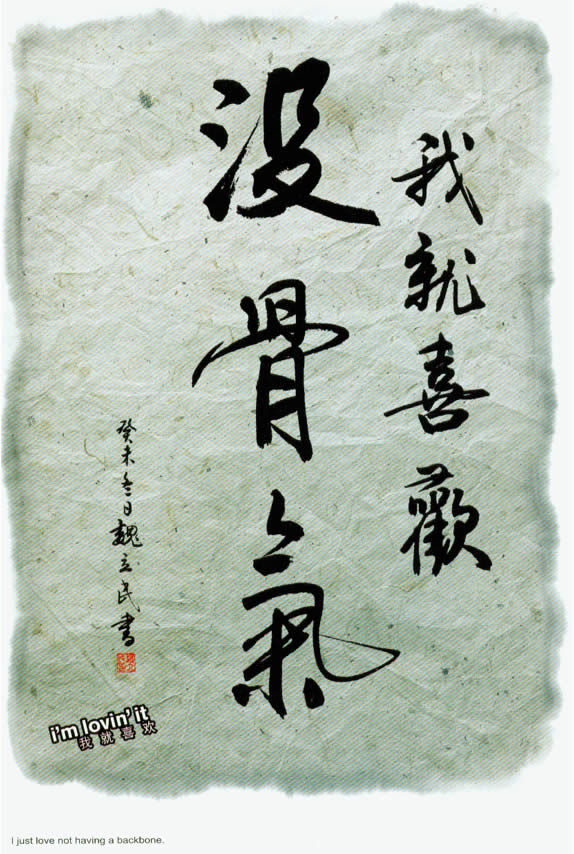 我就喜歡
没骨氣
癸未冬日魏立民書
i'm lovin' it
我就喜欢
I just love not having a backbone.